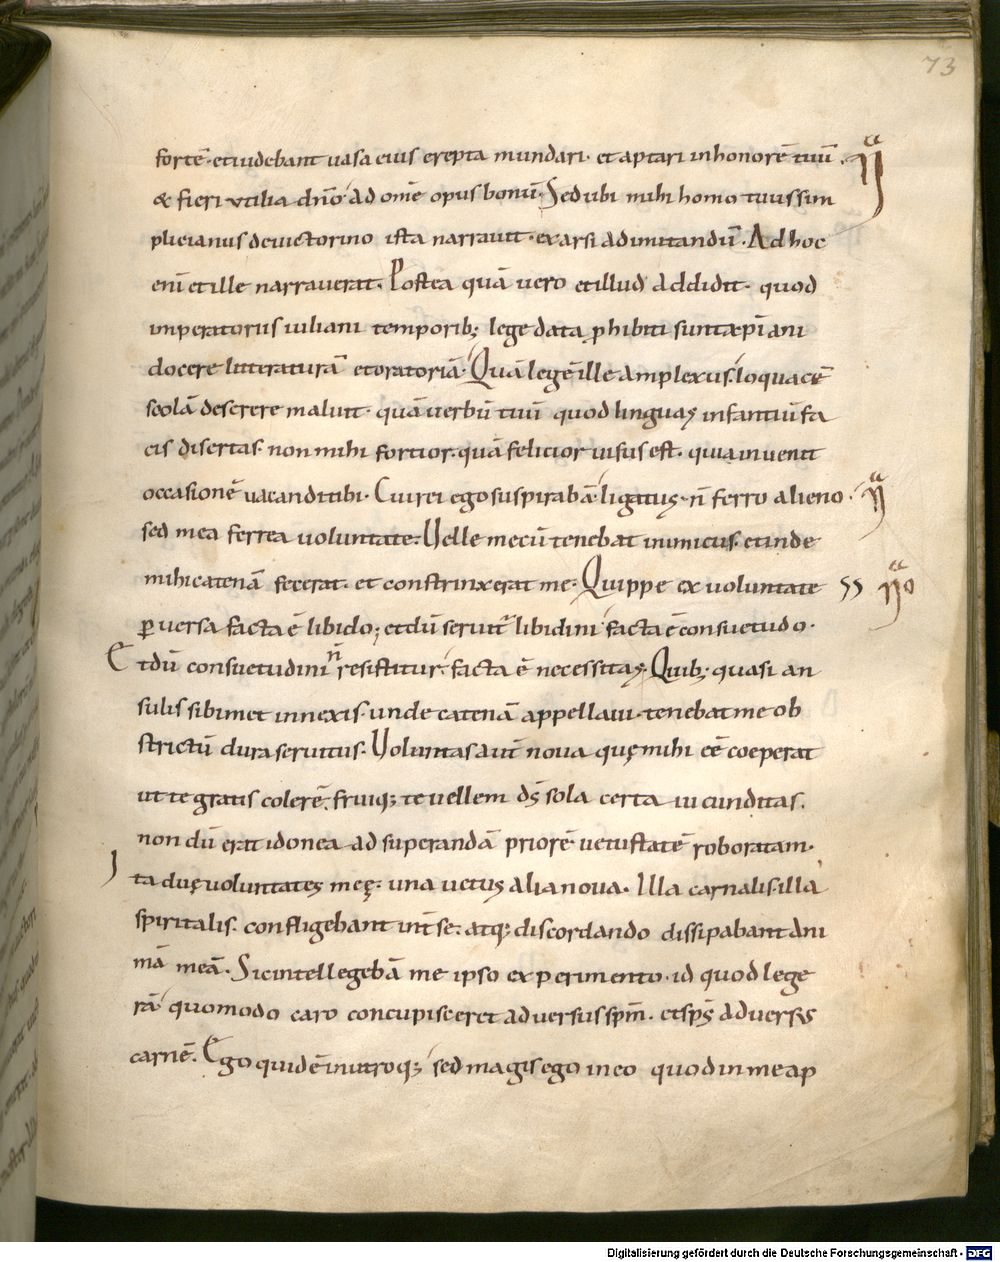 73
fortē· et uidebant uasa eius erepta mundari· et aptari in honorē tuū·
& fieri utilia dn̄o ad omē opus bonū· Sed ubi mihi homo tuus sim
plicianus deuictorino ista narrauit· exarsi ad imitandū· Ad hoc
enī et ille narrauerat. Postea quā uero et illud addidit· quod
imperatoriis iuliani temporib; lege data ꝓhibiti sunt xp̄iani
docere litteraturā et oratoriā· Quā legē ille amplexus· loquacē
scolā deserere maluit· quā uerbū tuū quod linguas infantiū fa
cis disertas· non mihi fortior· quā felicior uisus est· quia inuenit
occasionē uacandi tibi· Cui rei ego suspirabā· ligatus· n̄ ferro alieno·
sed mea ferrea uoluntate· Uelle meū tenebat inimicus· et inde
mihi catenā fecerat· et constrinxerat me· Quippe ex uoluntate
ꝑuersa facta ē libido; et dū seruit libidini facta ē consuetudo·
Et dū consuetudini n̄ resistitur· facta ē necessitas· Quib; quasi an
sulis sibimet innexis· unde catenā appellaui· tenebat me ob
strictū dura seruitus· Uoluntas aut̄ noua quę mihi eē coeperat
ut te gratis colerē· fruiq; te uellem ds̄ sola certa iucunditas·
non dū erat idonea ad superandā priorē uetustatē roboratam·
Ita duę uoluntates meę· una uetus alia noua· Illa carnalis· illa
spiritalis· confligebant int̄ se· atq; discordando dissipabant ani
mā meā· Sic intellegebā me ipso experimento· id quod lege
rā quomodo caro concupisceret aduersus sp̄m· et sp̄s aduersus
carnē· Ego quidē in utroq; sed magis ego in eo quod in me ap
Digitalisierung gefördert durch die Deutsche Forschungsgemeinschaft - DFG